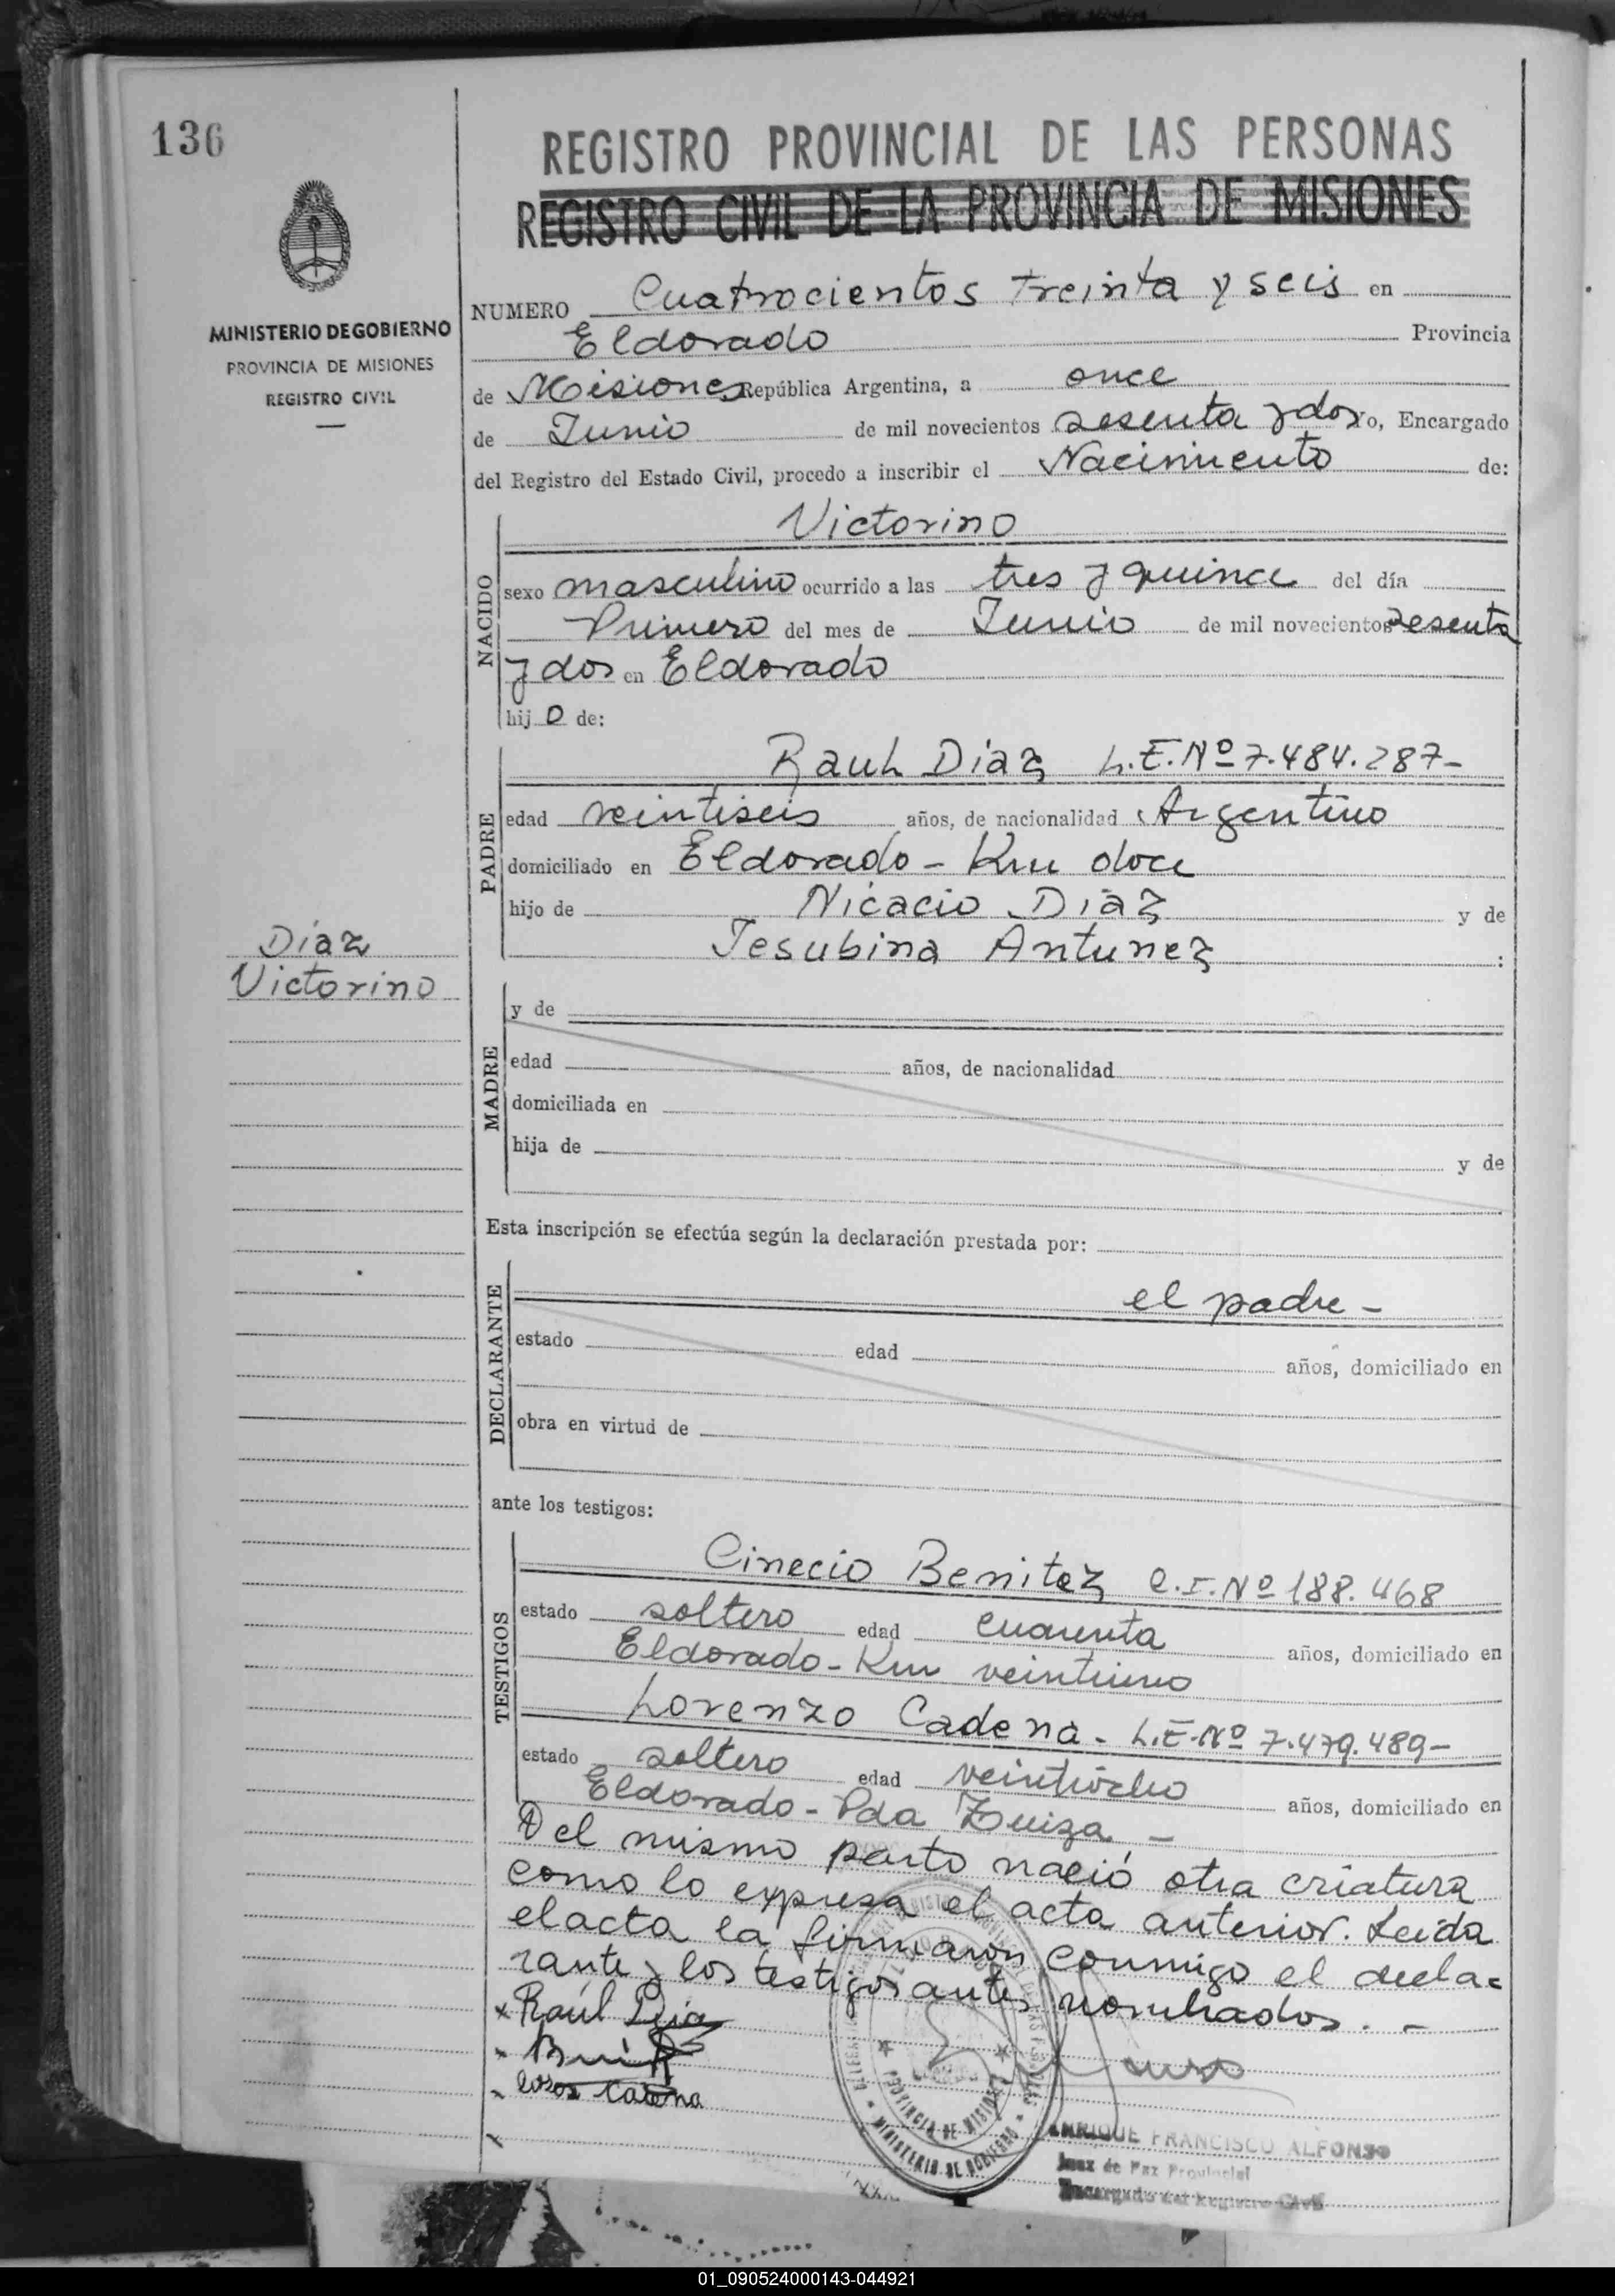 136
REGISTRO PROVINCIAL DE LAS PERSONAS
REGISTRO CIVIL DE LA PROVINCIA DE MISIONES
MINISTERIO DE GOBIERNO
PROVINCIA DE MISIONES
REGISTRO CIVIL
NUMERO Cuatrocientos treinta y seis en
Eldorado Provincia
de Misiones República Argentina, a once
de Junio de mil novecientos sesenta y dos Yo, Encargado
del Registro del Estado Civil, procedo a inscribir el Nacimiento de:
NACIDO
Victorino
sexo masculino ocurrido a las tres y quince del día
Primero del mes de Junio de mil novecientos sesenta
y dos en Eldorado
hijo de:
PADRE
Raul Diaz L.E. Nº 7.484.287-
edad veintiseis años, de nacionalidad Argentino
domiciliado en Eldorado - Km doce
hijo de Nicacio Diaz y de
Jesubina Antunez :
Diaz
Victorino
MADRE
y de
edad años, de nacionalidad
domiciliada en
hija de y de
Esta inscripción se efectúa según la declaración prestada por:
DECLARANTE
el padre -
estado edad años, domiciliado en
obra en virtud de
ante los testigos:
TESTIGOS
Cinecio Benitez C.I. Nº 188.468
estado soltero edad cuarenta años, domiciliado en
Eldorado - Km veintiuno
Lorenzo Cadena - L.E. Nº 7.479.489-
estado soltero edad veintiocho años, domiciliado en
Eldorado - Pda
Del mismo parto nació otra criatura
como lo expresa el acta anterior. Leida
el acta la firmaron conmigo el decla=
rante y los testigos antes nombrados. -
x Raúl
PROVINCIA DE MISIONES
MINISTERIO DE GOBIERNO
ENRIQUE FRANCISCO ALFONSO
Juez de Paz Provincial
Encargado del Registro Civil
01_090524000143-044921